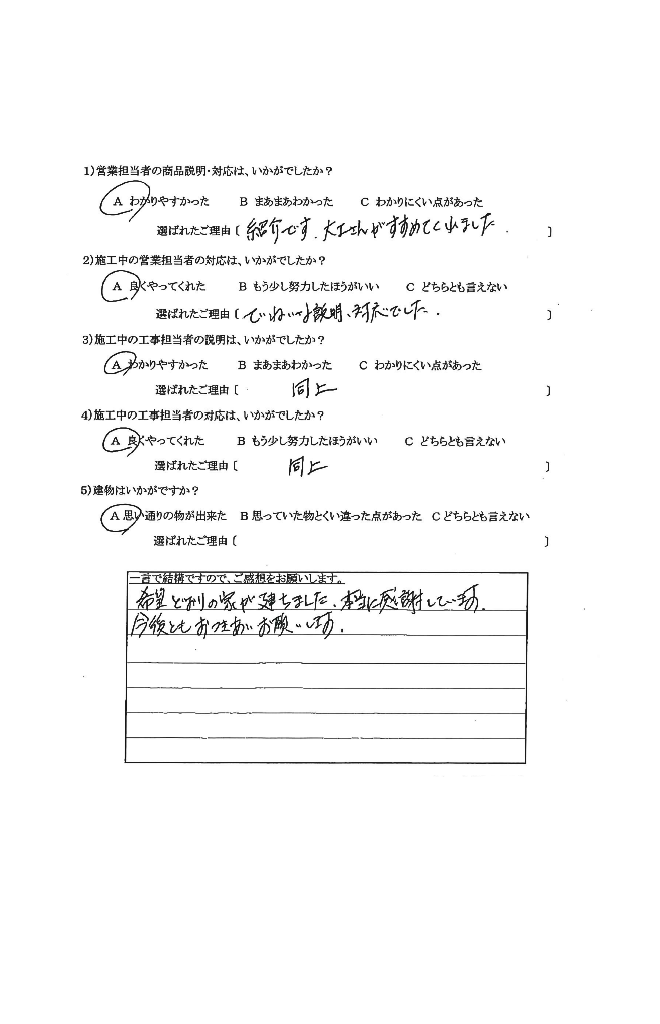 1)営業担当者の商品説明・対応は、いかがでしたか？
A わかりやすかった B まあまあわかった C わかりにくい点があった
選ばれたご理由〔 紹介です．大工さんがすすめてくれました． 〕
2)施工中の営業担当者の対応は、いかがでしたか？
A 良くやってくれた B もう少し努力したほうがいい C どちらとも言えない
選ばれたご理由〔 ていねいな説明、対応でした． 〕
3)施工中の工事担当者の説明は、いかがでしたか？
A わかりやすかった B まあまあわかった C わかりにくい点があった
選ばれたご理由〔 同上 〕
4)施工中の工事担当者の対応は、いかがでしたか？
A 良くやってくれた B もう少し努力したほうがいい C どちらとも言えない
選ばれたご理由〔 同上 〕
5)建物はいかがですか？
A 思い通りの物が出来た B 思っていた物とくい違った点があった C どちらとも言えない
選ばれたご理由〔 〕
一言で結構ですので、ご感想をお願いします。
希望どおりの家が建ちました．本当に感謝しています．
今後ともおつきあいお願いします．